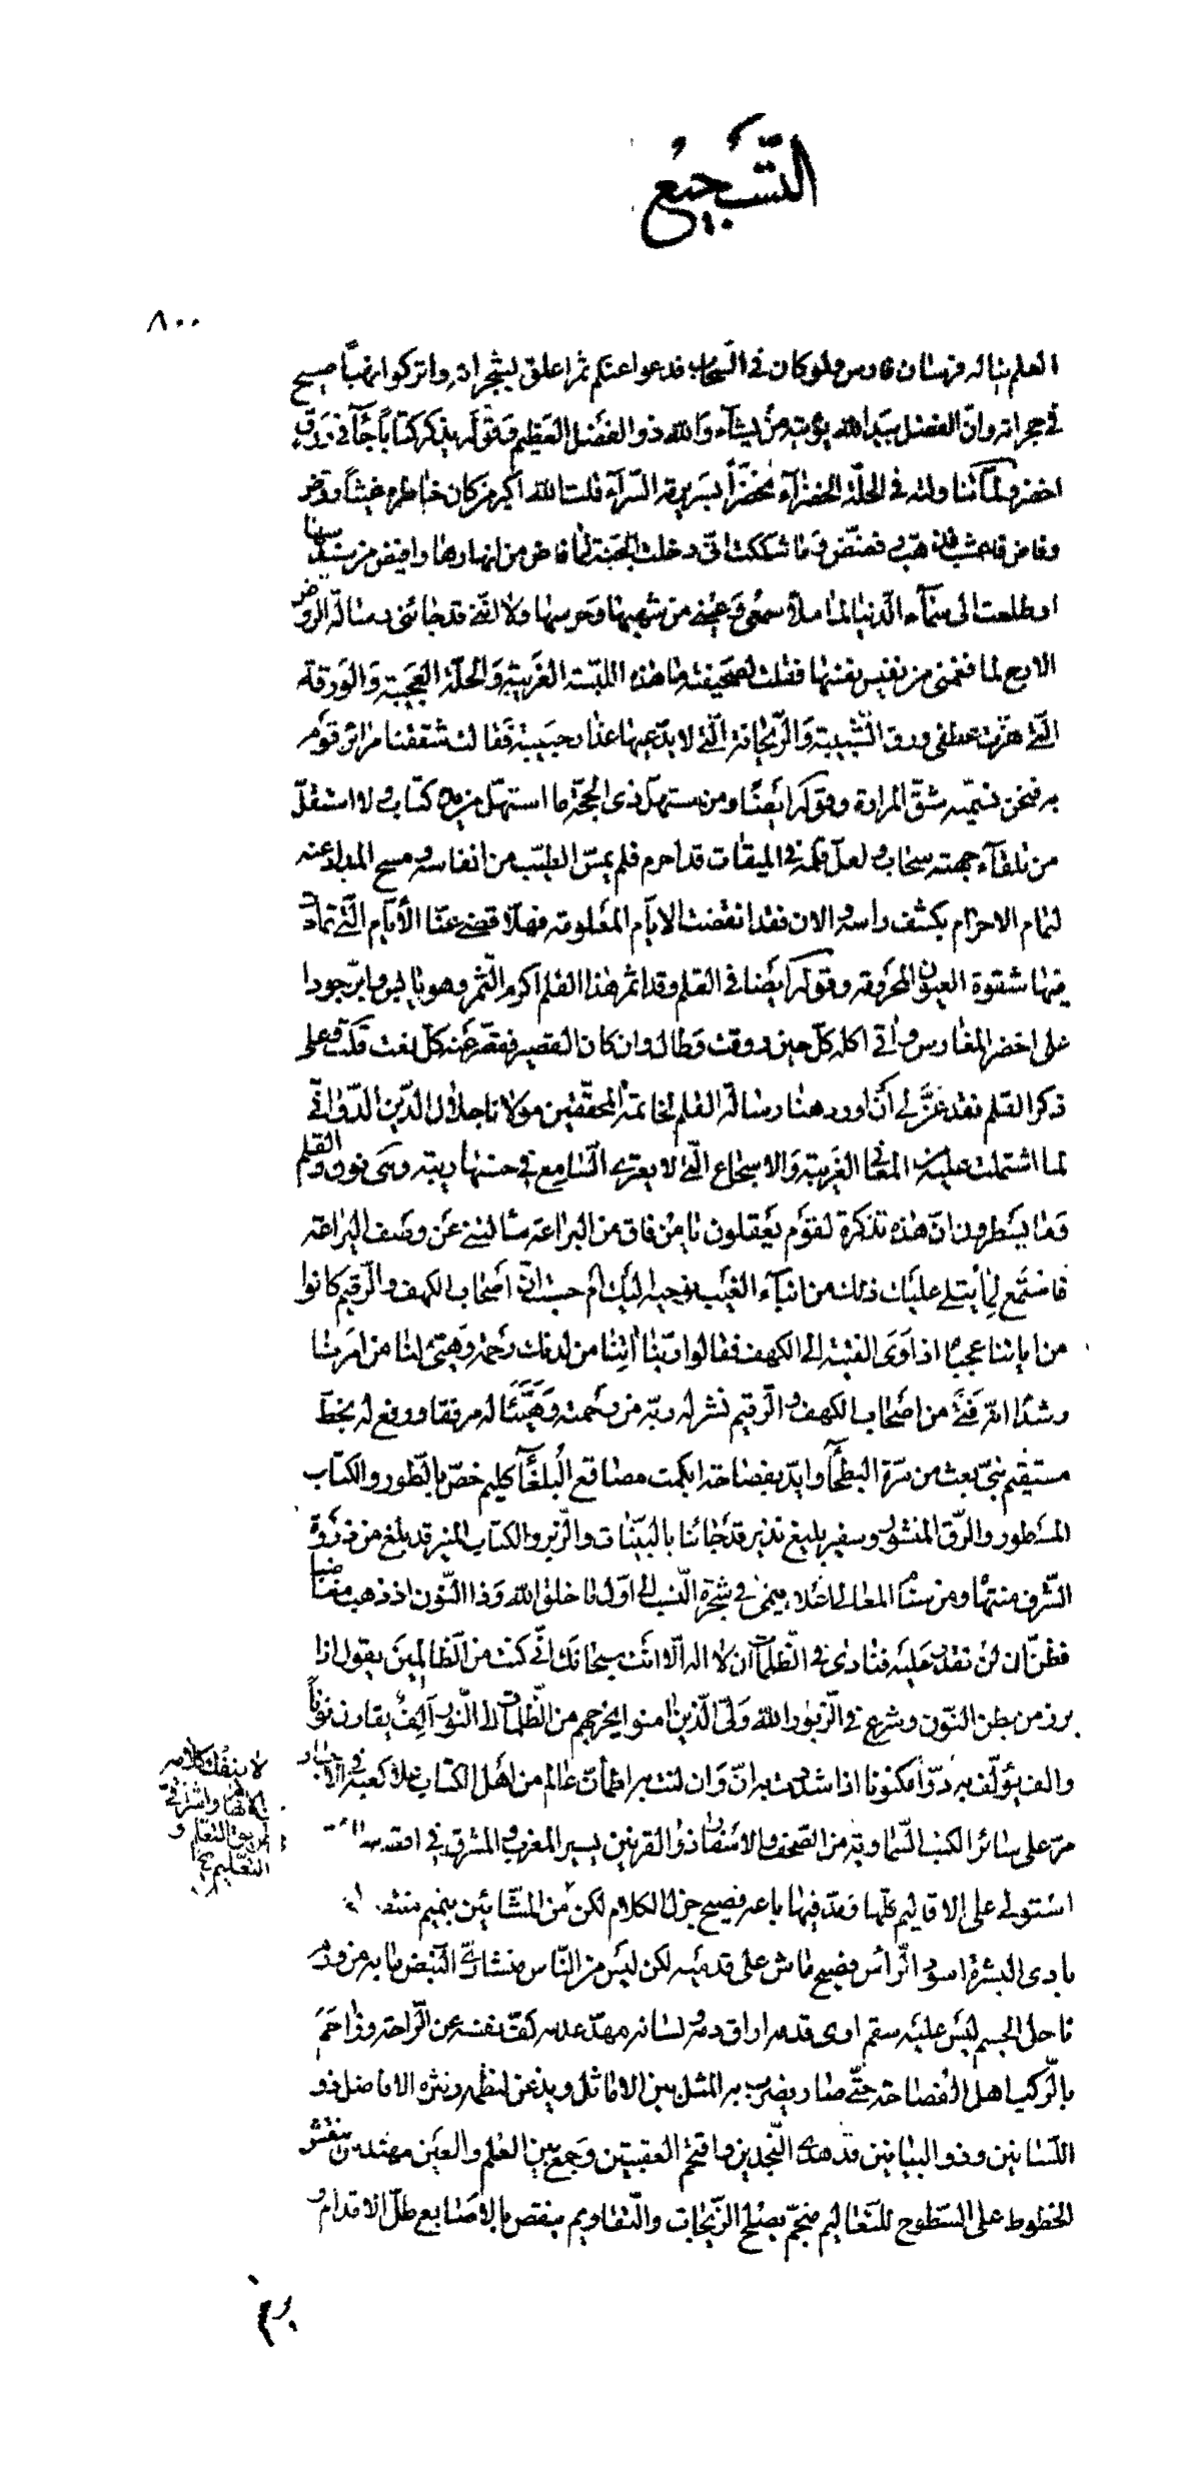 التّسجيع
٨٠٠
العلم يناله فرسان فارس ولو كان فى السّحاب فدعوا عنكم ثمرا علق بشجراته واتركوا نهبا صيح
فى حجراته وانّ الفضل بيد الله يؤتيه من يشآء والله ذو الفضل العظيم وقوله يذكر كتابا جآء فى ورق
اخضر ولمّا تناولته فى الحلّة الخضرآء محضرًا بسريرة السّرآء قلت الله أكبر من كان خاطره
وفاض قلت ما شككت انّى دخلت الجنة لما فاض من انهارها وافيض من سندسها
او طلعت الى سمآء الدّنيا لما ملأ سمعى وعينى من شهبها وحرسها ولا انّنى قد جائنى رسالة الروض
الاريج لما فغمنى من نفيس نفسها فقلت لصحيفته ما هذه اللبسة الغريبة والحلّة العجيبة والورقة
الّتى هزّت عطفى ورق الشّبيبة والرّيحانة الّتى لا يدّعيها عذار حبيبة فقالت شققنا مرائر قوم
به فنحن نسمّيه شقّ المرارة وقوله ايضا ومن مستهلّ ذى الحجّة ما استهلّ من كتاب ولا استقلّ
من تلقآء جهته سحاب ولعلّ قلمه فى الميقات قد احرم فلم يمسّ الطيب من انفاسه ومسح المداد عنه
لتمام الاحرام بكشف راسه والان فقد انقضت الايام المعلومة فهلّا قضى عنّا الأيام الّتى تمادت
فيها شقوة العيون المحرومة وقوله ايضا فى القلم وقد اثمر هذا القلم اكرم الثّمر وهو يابس وابرّ جودا
على اخضر المغارس واتى اكله كلّ حين ووقت وطال وان كان القصير فقصّر عنه كلّ نعت قلت وعلى
ذكر القلم فقد عنّ لى أن اورد هنا رسالة القلم لخاتمة المحقّقين مولانا جلال الدّين الدّوانى
لما اشتملت عليه من المعانى الغريبة والاسجاع الّتى لا يعترى السّامع فى حسنها ريبة وهى نون والقلم
وما يسطرون انّ هذه تذكرة لقوم يعقلون يا من فاق من البراعة سألتنى عن وصف اليراعة
فاستمع لما يتلى عليك ذلك من انبآء الغيب نوحيه اليك ام حسبت انّ أصحاب الكهف والرّقيم كانوا
من اياتنا عجبا اذ اوى الفتية الى الكهف فقالوا ربّنا آتنا من لدنك رحمة وهيّئ لنا من امرنا
رشدا انّه فتى من اصحاب الكهف والرّقيم نشر له ربّه من رحمته وهيّئا له مرفقا ووقع له بخطّ
مستقيم نبىّ بعث من سرّة البطحآ وايّد بفصاحة ابكمت مصاقع البلغآ كليم خصّ بالطّور والكتاب
المسطور والرّق المنشور وسفير بليغ نذير قد جائنا بالبيّنات والزّبر والكتاب المنير قد بلغ من ذروة
الشّرف منتهاه ومن سنا المعالى اعلاه ينمى فى شجرة النّسب الى اوّل ما خلق الله وذا النّون اذ ذهب مغاضبا
فظنّ ان لن نقدر عليه فنادى فى الظّلمات ان لا اله الّا انت سبحانك انّى كنت من الظّالمين يقول اذا
برز من بطن النّون وشرع فى الزّبور الله ولىّ الّذين امنوا يخرجهم من الظّلمات الى النّور أليف يقارن نونا
والف يؤلّف به درّا مكنونا اذا شدت به انّ وان لنت به اطمأنّ عالم من اهل الكتاب علّا كعبه فى الاحبار
مرّ على سائر الكتب السّماوية من الصّحف والاسفار ذو القرنين يسير المغرب والمشرق فى
استولى على الاقاليم كلّها ومدّ فيها باعه فصيح جزل الكلام لكن من المشّائين بنميم
بادى البشرة اسود الرّأس فصيح ماش على قدميه لكن ليس من النّاس منشارىّ النّبض ما به من ورم
ناحل الجسم ليس عليه سقم اوى قدمه اراق دمه لسانه كفّ نفسه عن الرّاحة وزاحم
بالرّكب اهل الفصاحة حتّى صار يضرب به المثل بين الاماثل ويذعن لنظمه ونثره الافاضل ذو
اللّسانين وذو البيانين قد هدى النّجدين واقتحم العقبتين وجمع بين العلم والعين مهندس ينقش
الخطوط على السّطوح للتّعاليم منجّم يصلح الزّيجات والتّقاويم ينقص بالاصابع ظلّ الاقدام و
لا ينفك كلامه
التعلم و
التعليم